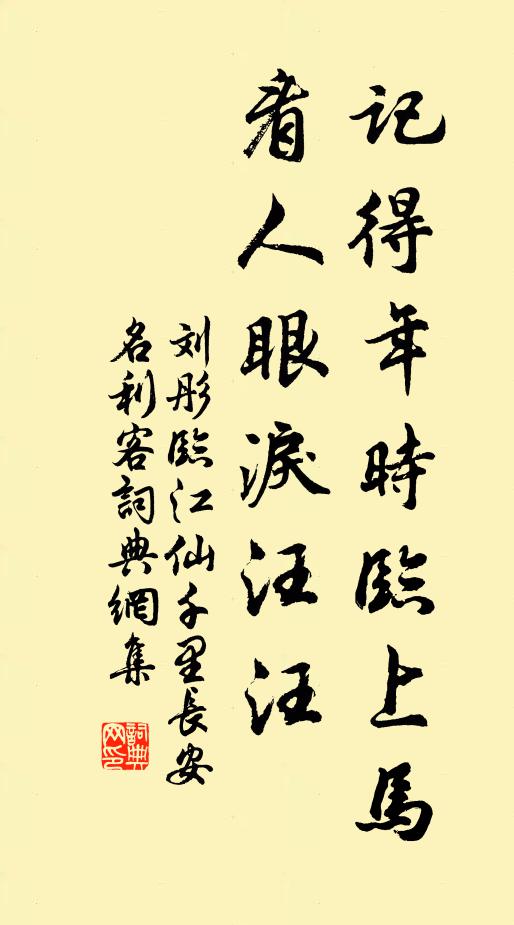 記得年時臨上馬
看人眼淚汪汪
刘彤臨江仙千里長安
名利客詞典網集
詞典
网印